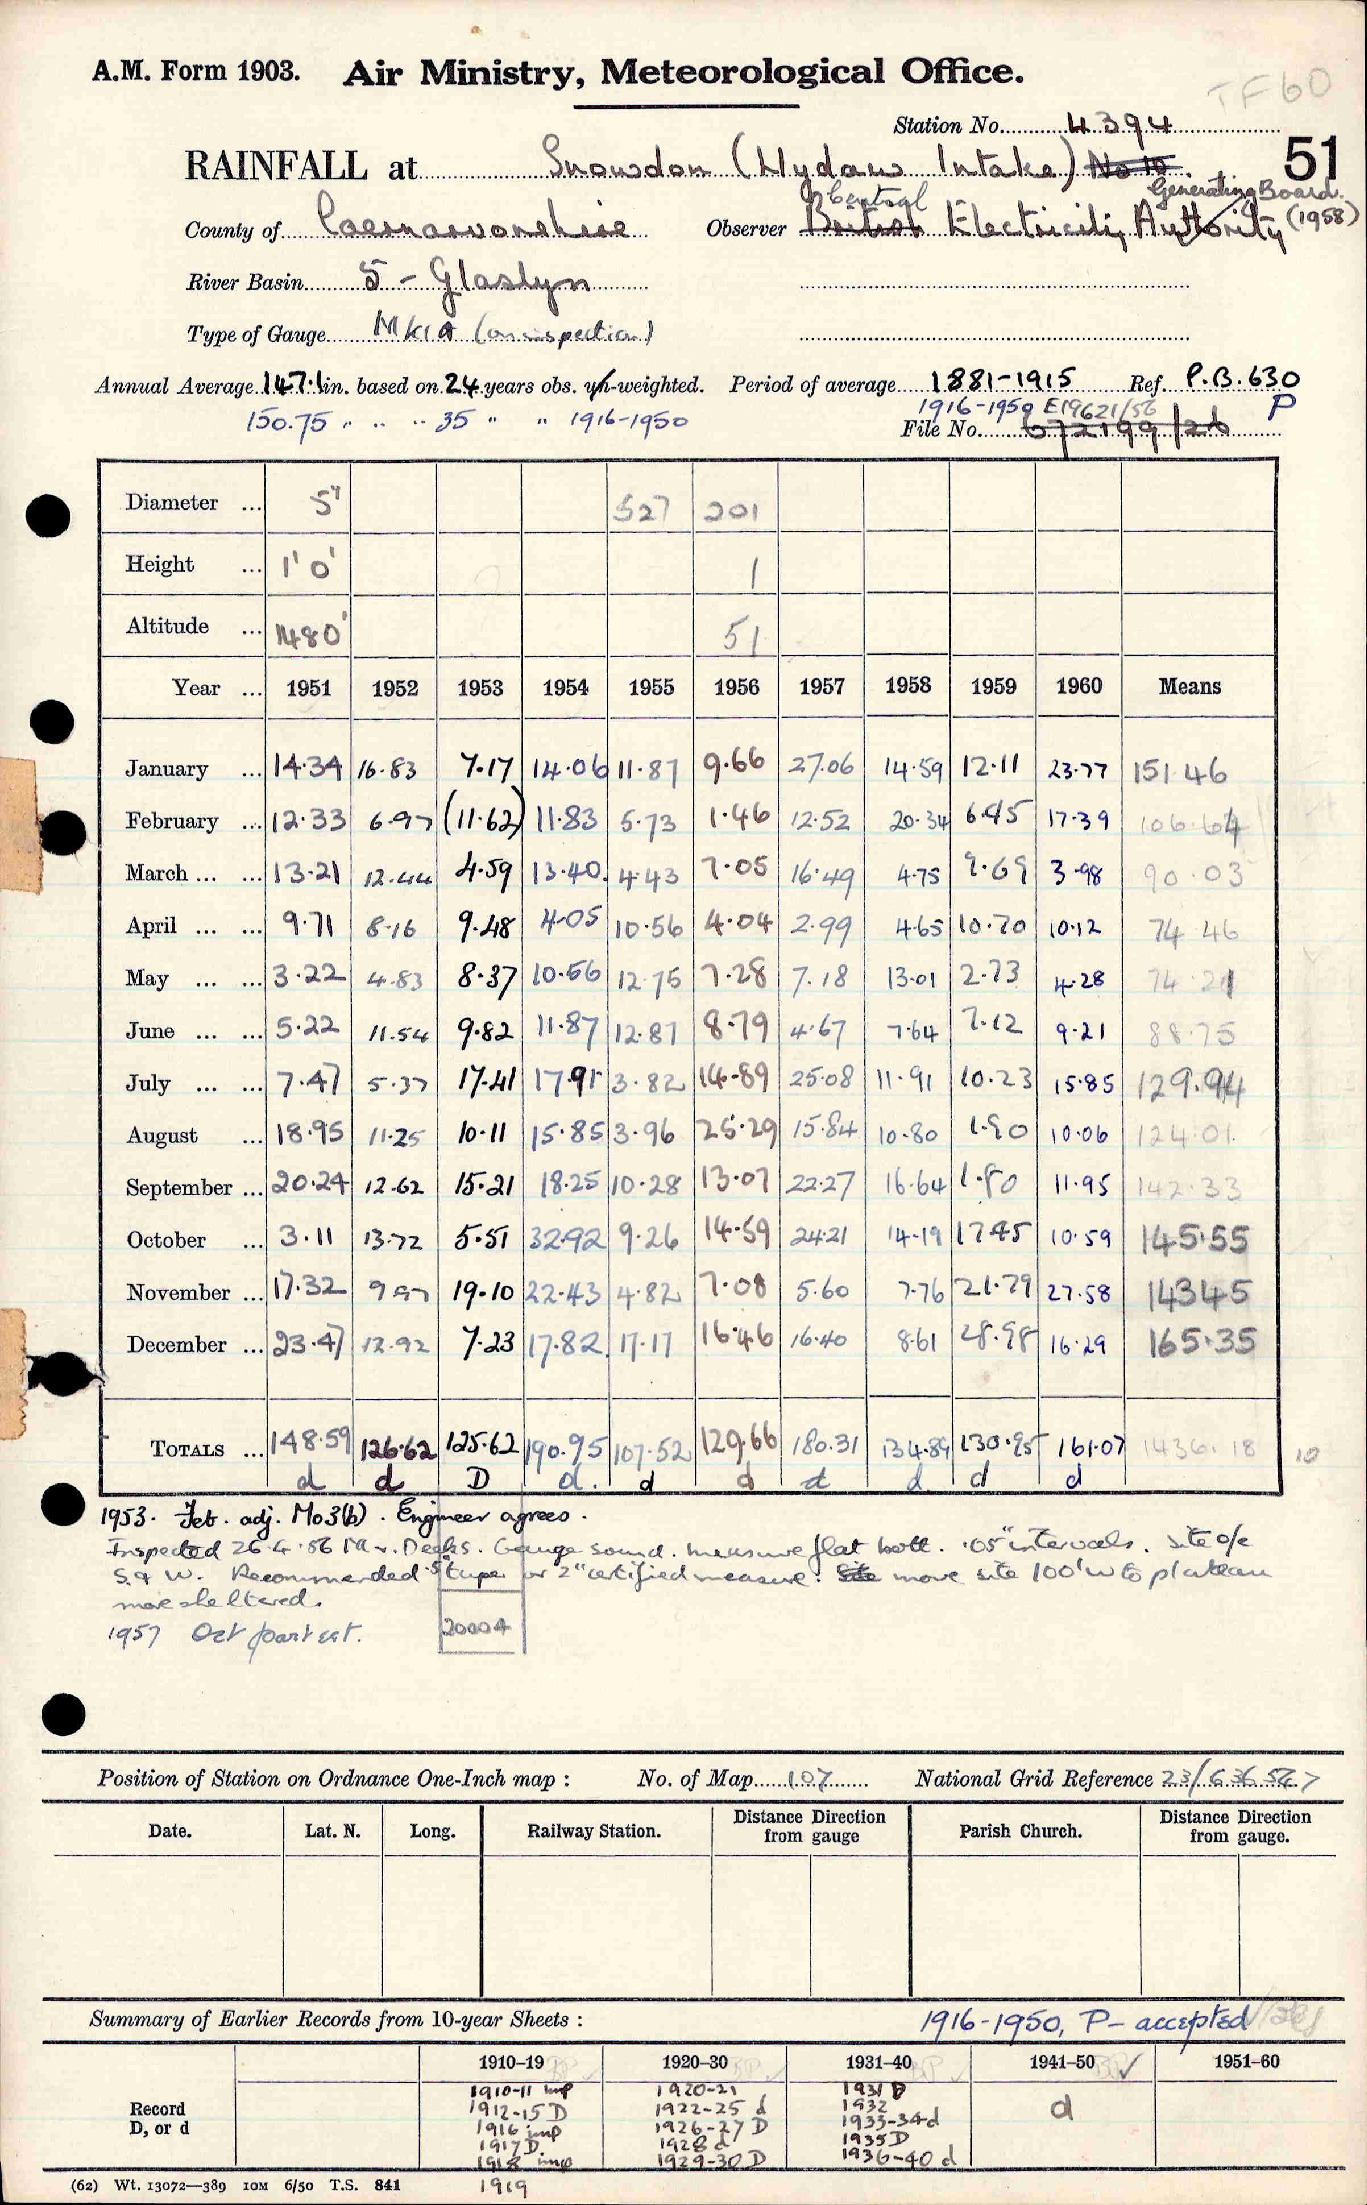 A.M. Form 1903. Air Ministry, Meteorological Office.
TF60
Station No. 4394
51
RAINFALL at Snowdon (Llydaw Intake) No 10
Central Generating Board
County of Caernarvonshire Observer British Electricity Authority (1958)
River Basin 5 - Glaslyn
Type of Gauge MK1A (on inspection)
Annual Average 147.1 in. based on 24 years obs. un-weighted. Period of average 1881-1915 Ref. P.B.630
150.75 " " " 35 " " 1916-1950 1916-1950 E19621/56 P
File No. 672199/26
Diameter ... 5" 527 201
Height ... 1' 0" 1
Altitude ... 1480' 51
Year ... 1951 1952 1953 1954 1955 1956 1957 1958 1959 1960 Means
January ... 14.34 16.83 7.17 14.06 11.87 9.66 27.06 14.59 12.11 23.77 151.46
February ... 12.33 6.97 (11.62) 11.83 5.73 1.46 12.52 20.34 6.45 17.39 106.64
March ... ... 13.21 12.44 4.59 13.40 4.43 7.05 16.49 4.75 9.69 3.98 90.03
April ... ... 9.71 8.16 9.48 4.05 10.56 4.04 2.99 4.65 10.70 10.12 74.46
May ... ... 3.22 4.83 8.37 10.56 12.75 7.28 7.18 13.01 2.73 4.28 74.21
June ... ... 5.22 11.54 9.82 11.87 12.87 8.79 4.67 7.64 7.12 9.21 88.75
July ... ... 7.47 5.37 17.41 17.91 3.82 14.89 25.08 11.91 10.23 15.85 129.94
August ... 18.95 11.25 10.11 15.85 3.96 25.29 15.84 10.80 1.90 10.06 124.01
September ... 20.24 12.62 15.21 18.25 10.28 13.07 22.27 16.64 1.80 11.95 142.33
October ... 3.11 13.72 5.51 32.92 9.26 14.59 24.21 14.19 17.45 10.59 145.55
November ... 17.32 9.97 19.10 22.43 4.82 7.08 5.60 7.76 21.79 27.58 143.45
December ... 23.47 12.92 7.23 17.82 17.17 16.46 16.40 8.61 28.98 16.29 165.35
TOTALS ... 148.59 126.62 125.62 190.95 107.52 129.66 180.31 134.89 130.95 161.07 1436.18 10
d d D d. d d d d d d
1953. Feb. adj. Mo3(b). Engineer agrees.
Inspected 26.4.56 Mr. Deeks. Gauge sound. measure flat bott. .05" intervals. Site o/e
S. & W. Recommended 5" taper or 2" certified measure. Site move site 100' W to plateau
more sheltered.
1957 Oct part est.
20004
Position of Station on Ordnance One-Inch map : No. of Map 107 National Grid Reference 23/636547
Date. Lat. N. Long. Railway Station. Distance Direction from gauge Parish Church. Distance Direction from gauge.
Summary of Earlier Records from 10-year Sheets : 1916-1950, P- accepted
1910-19 1920-30 1931-40 1941-50 1951-60
Record D, or d
1910-11 imp 1920-21 1931 D d
1912-15 D 1922-25 d 1932
1916 imp 1926-27 D 1933-34 d
1917 D 1928 d 1935 D
1918 imp 1929-30 D 1936-40 d
1919
(62) Wt. 13072—389 10M 6/50 T.S. 841